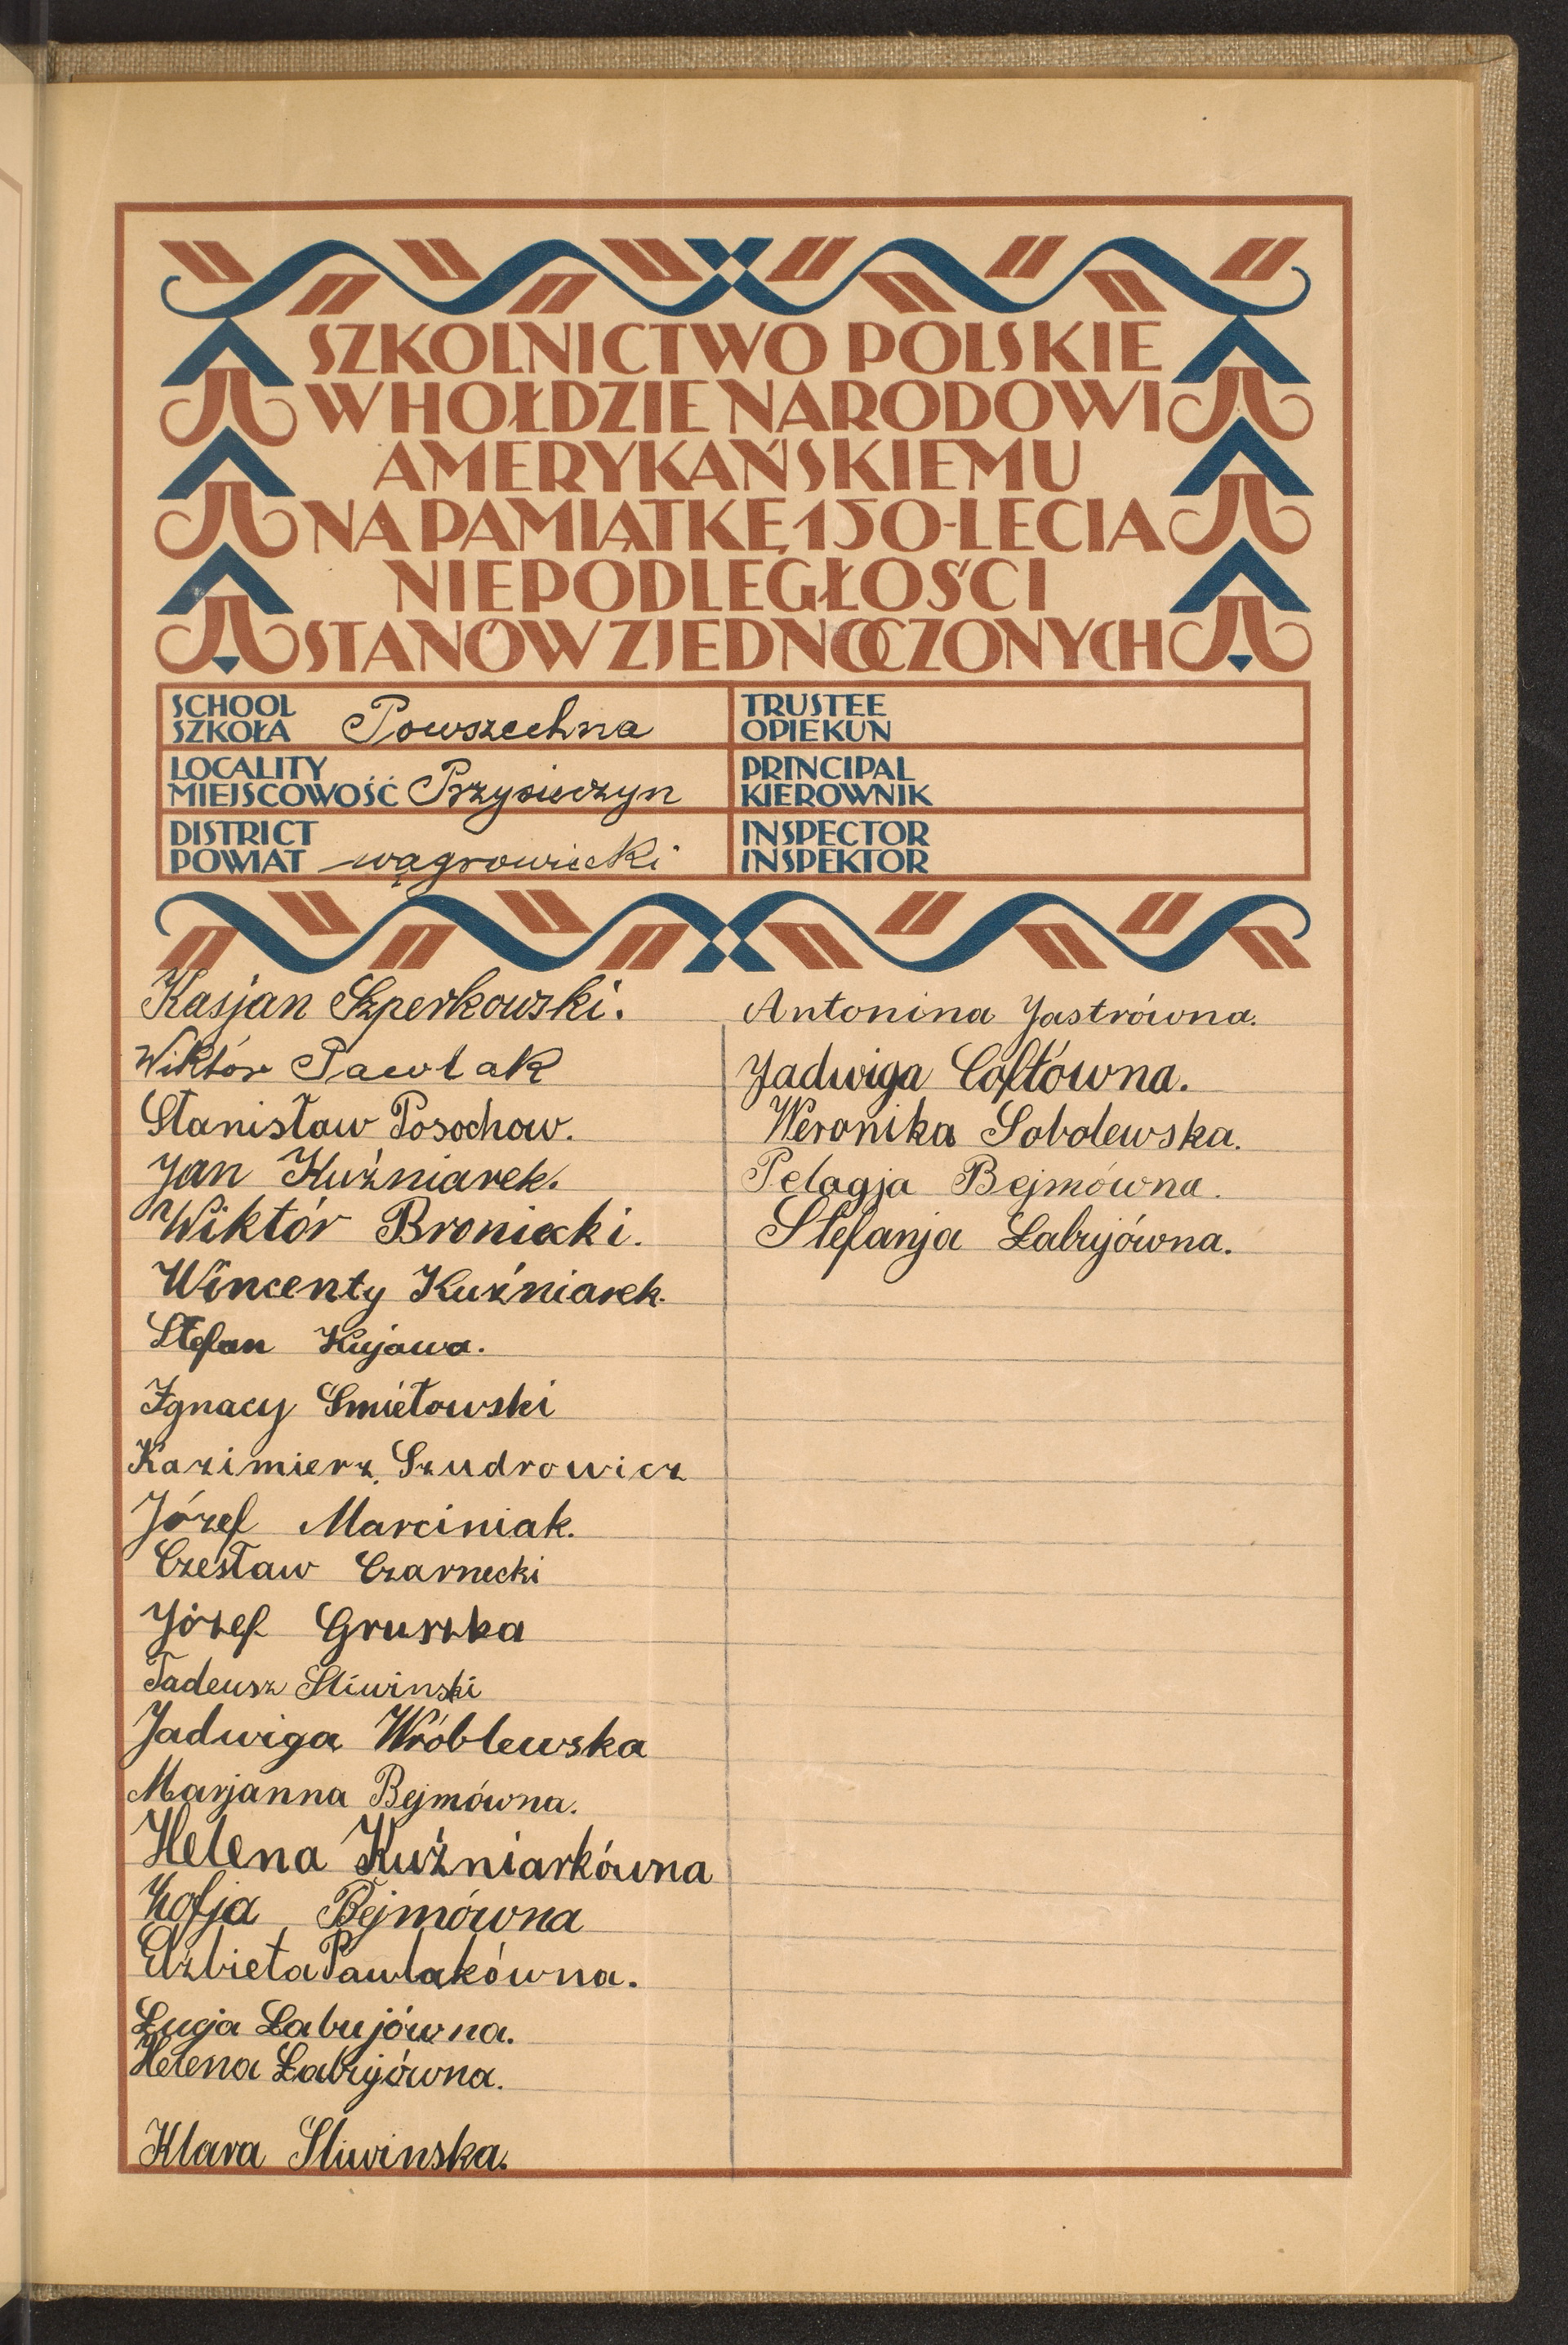 SZKOLNICTWO POLSKIE
W HOŁDZIE NARODOWI
AMERYKAŃSKIEMU
NA PAMIĄTKĘ 150-LECIA
NIEPODLEGŁOŚCI
STANÓW ZJEDNOCZONYCH
SCHOOL
SZKOŁA Powszechna
LOCALITY
MIEJSCOWOŚĆ Przysieczyn
DISTRICT
POWIAT wągrowiecki
TRUSTEE
OPIEKUN
PRINCIPAL
KIEROWNIK
INSPECTOR
INSPEKTOR
Kasjan Szperkowski.
Wiktór Pawlak
Stanisław Posochow.
Jan Kuźniarek.
Wiktór Broniecki.
Wincenty Kuźniarek.
Stefan Kujawa.
Ignacy Smiełowski
Kazimierz Szudrowicz
Józef Marciniak.
Czesław Czarnecki
Józef Gruszka
Tadeusz Sliwinski
Jadwiga Wróblewska
Marjanna Bejmówna.
Helena Kuźniarkówna
Zofja Bejmówna
Elżbieta Pawlakówna.
Łucja Łabujówna.
Helena Łabujówna.
Klara Sliwinska.
Antonina Jastrówna.
Jadwiga Cołtówna.
Weronika Sobolewska.
Pelagja Bejmówna.
Stefanja Łabujówna.